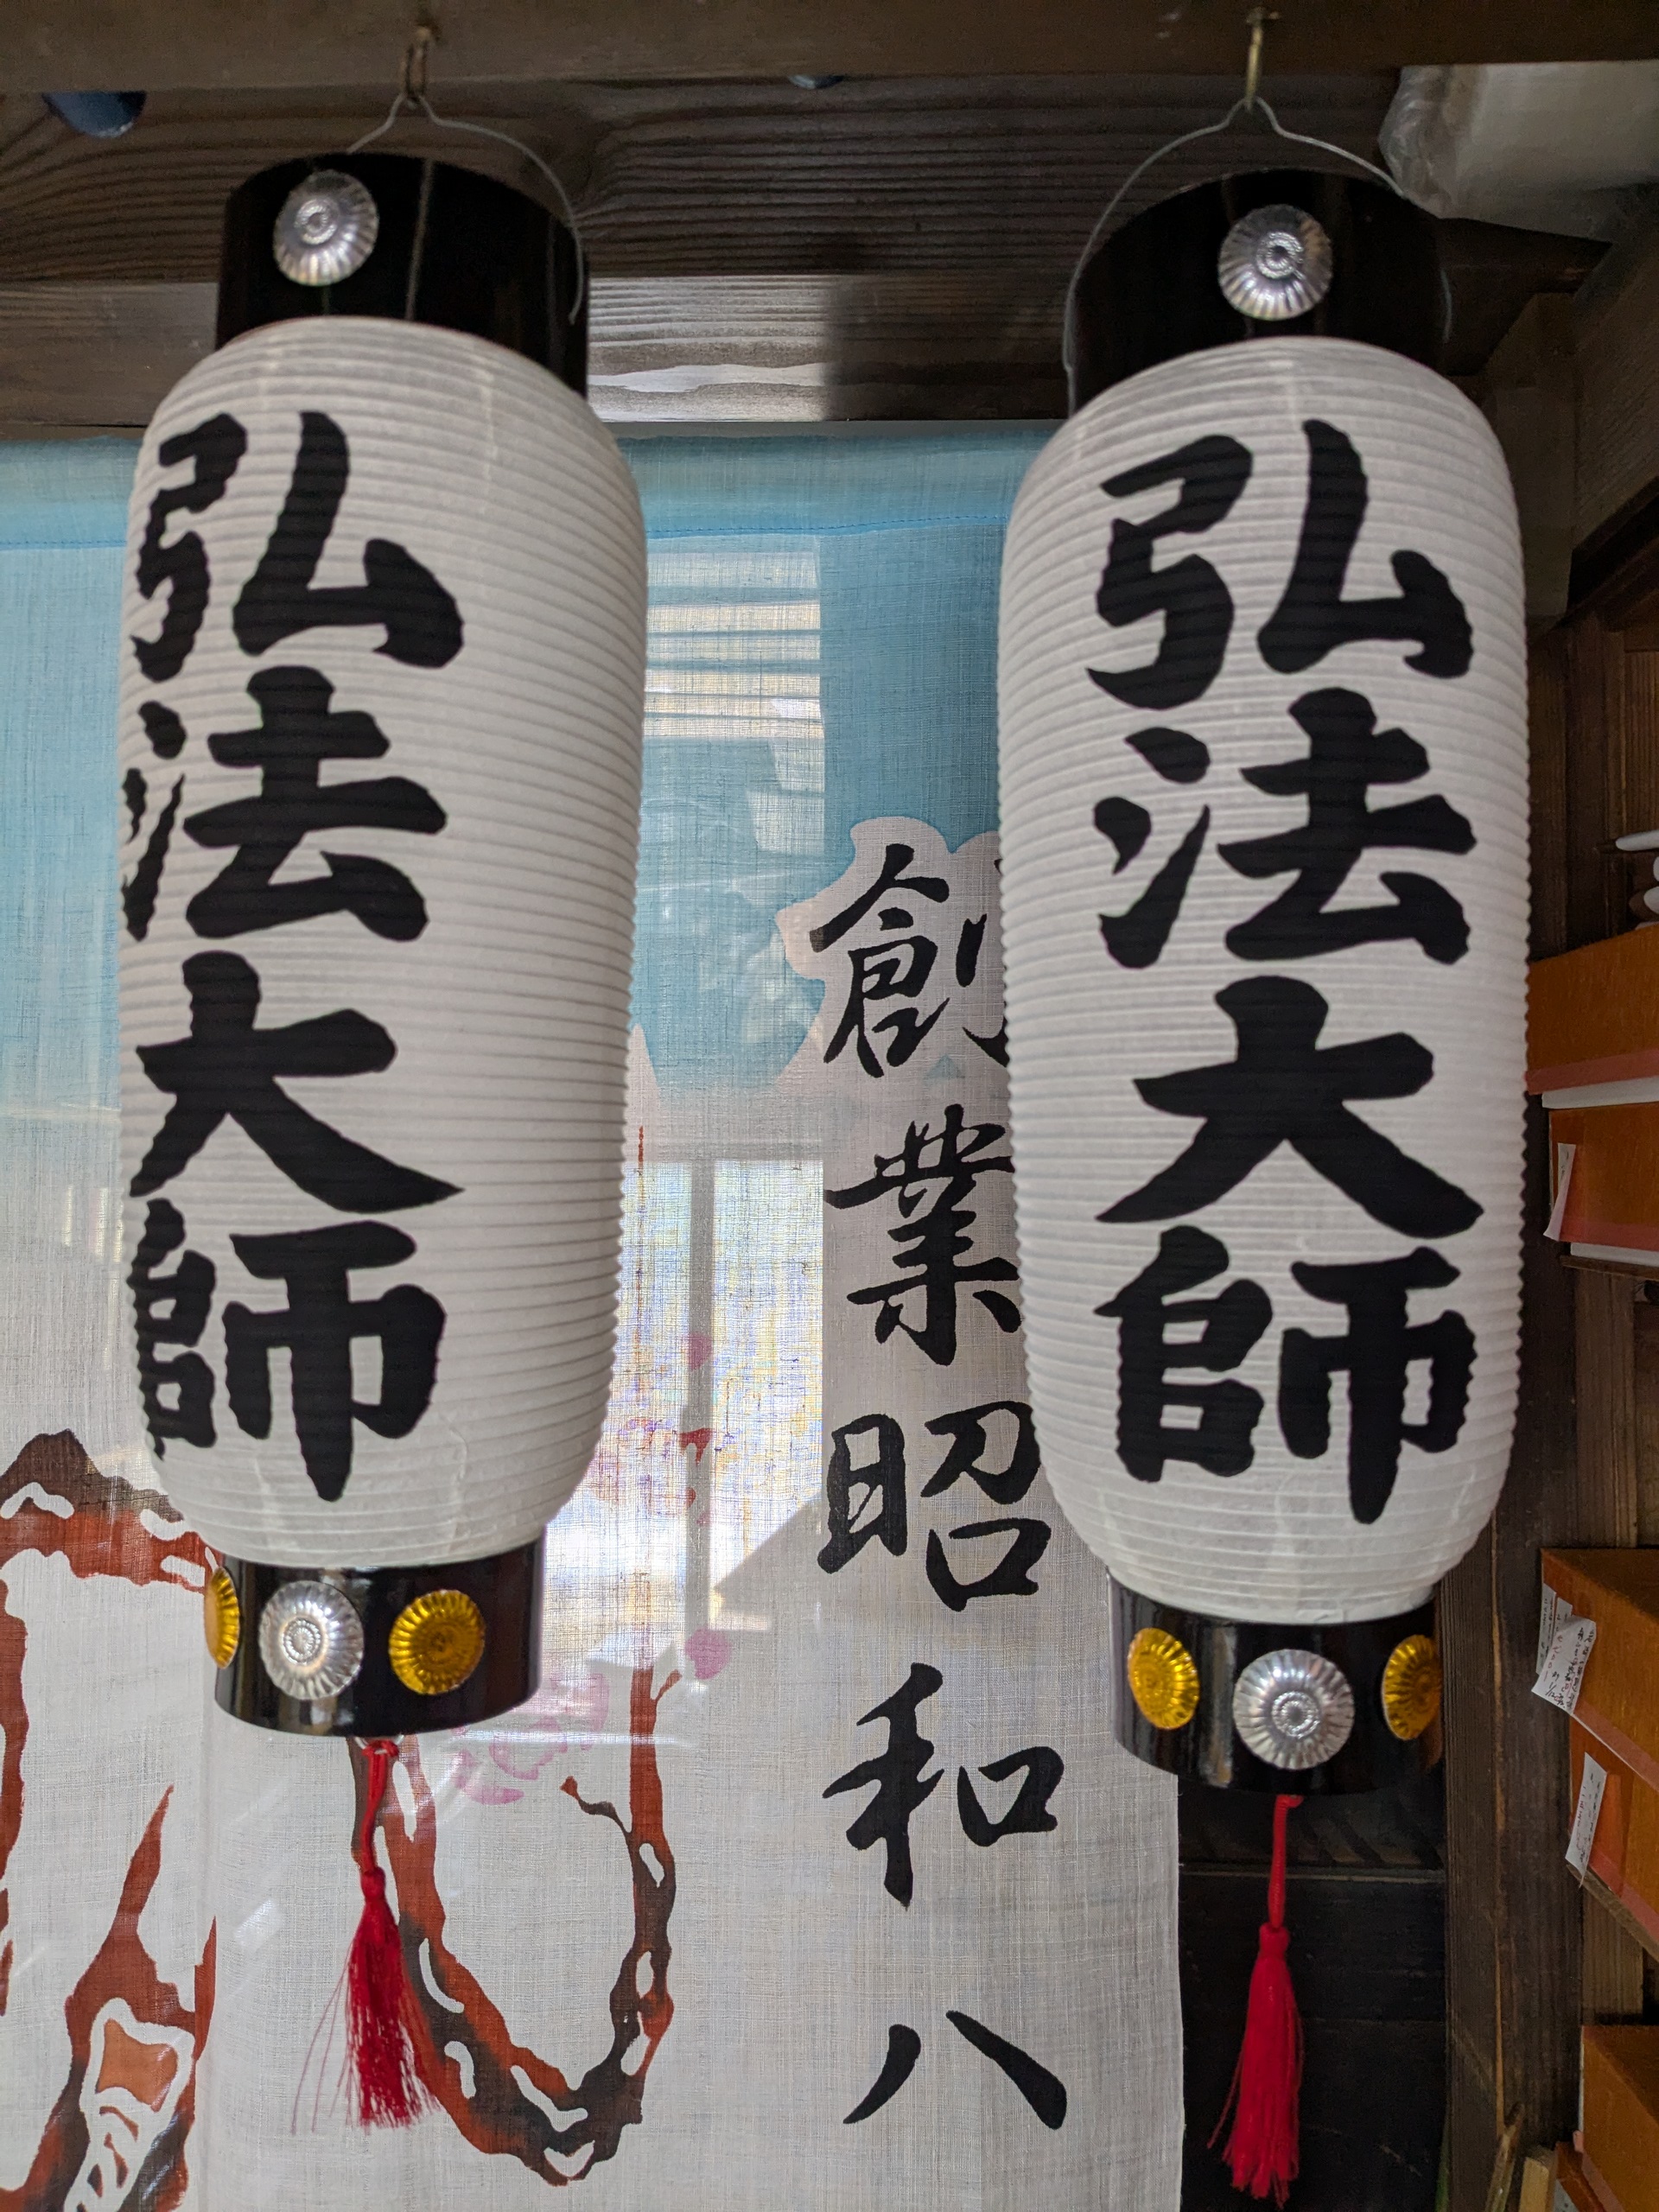 弘法大師
創業昭和八
弘法大師